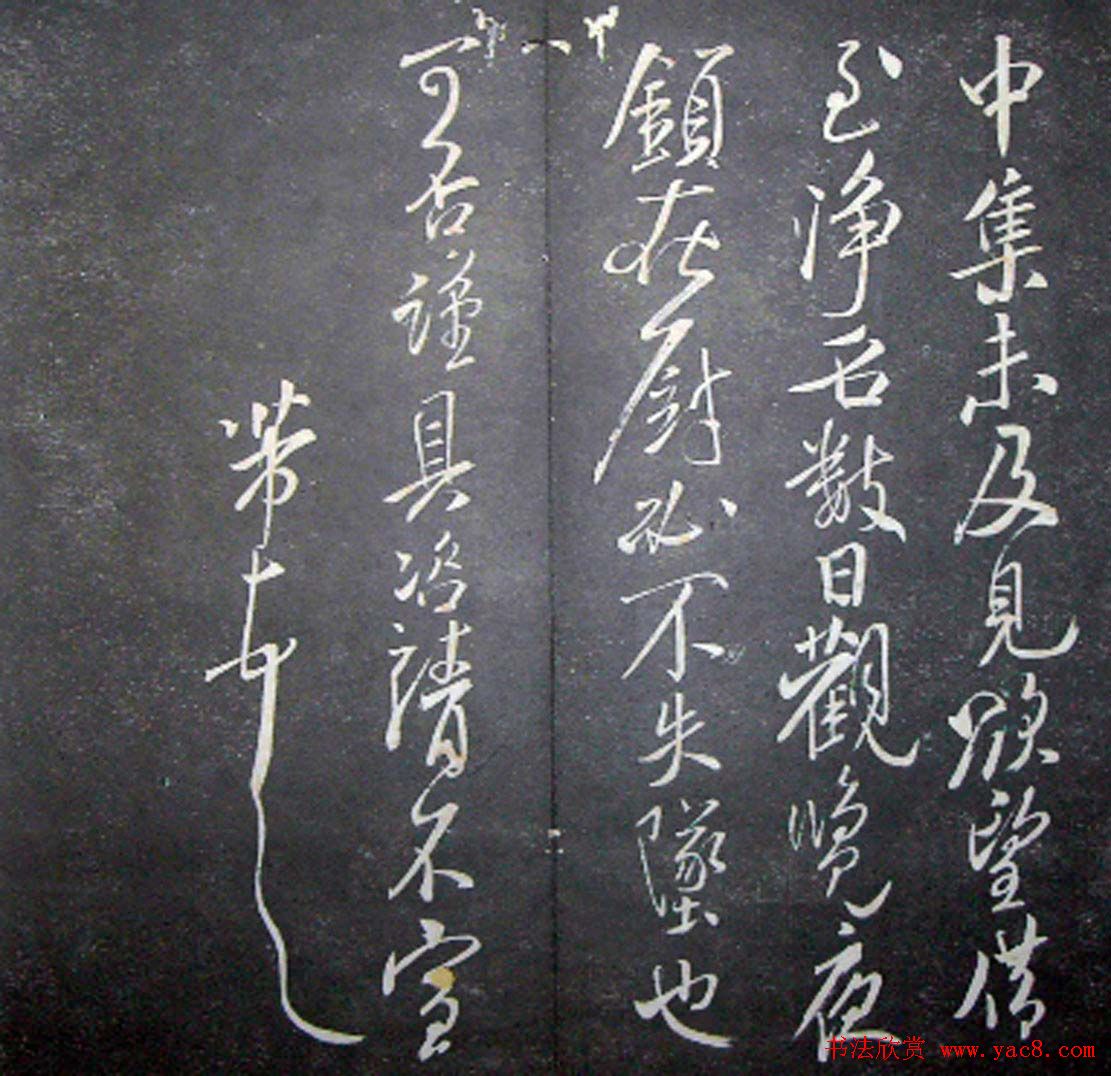 中集未及見欲望借
至淨名數日觀覽夜
鎖在厨必不失墜也
可否謹具咨請不宣
芾
书法欣赏 www.yac8.com